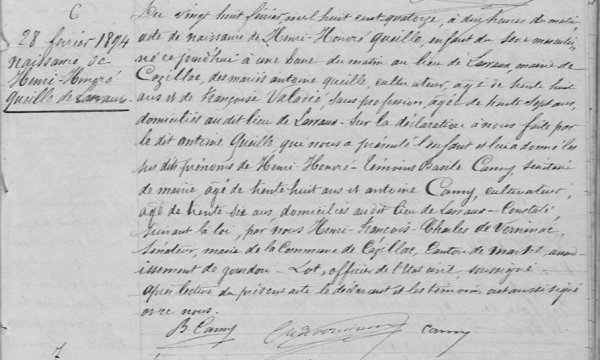 6
28 février 1894
naissance de
Henri-Honoré
Queille de Larraux
Du vingt huit février mil huit cent quatorze, à dix heures du matin
acte de naissance de Henri-Honoré Queille, enfant du sexe masculin,
né ce jourd'hui à une heure du matin au lieu de Larraux, mairie de
Cazillac, des mariés antoine queille, cultivateur, agé de trente huit
ans et de Françoise Valadié, sans profession, agée de trente sept ans,
domiciliés au dit lieu de Larraux. Sur la déclaration à nous faite par
le dit antoine Queille, qui nous a présenté l'enfant et lui a donné les
sus dits prénoms de Henri-Honoré. Témoins Basile Camy, secrétaire
de mairie agé de trente huit ans et antoine Camy, cultivateur,
agé de trente six ans, domiciliés au dit lieu de Larraux. Constaté
suivant la loi, par nous Henri-François-Charles de Verninac,
Sénateur, maire de la Commune de Cazillac, Canton de martel, arron-
dissement de gourdon - Lot, officier de l'état civil, soussigné.
Après lecture du présent acte le déclarant et les témoins ont aussi signé
avec nous.
B. Camy camy
7